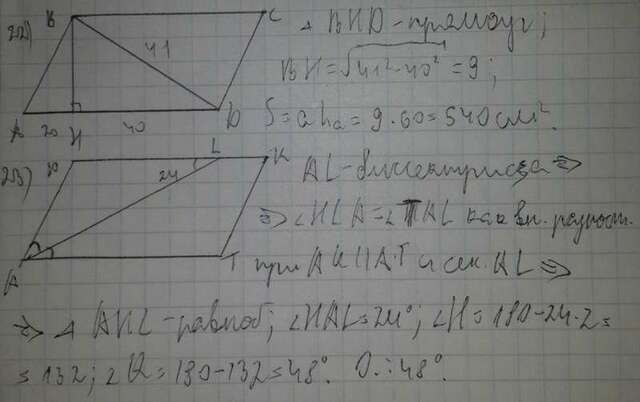 B C
41
A 20 H 40 D
△ BHD - прямоуг;
BH = √41²-40² = 9;
S = a hₐ = 9·60 = 540 см².
203) H L K
24
A T
AL - биссектриса ⇒
⇒ ∠HLA = ∠TAL как вн. разност.
при HK || AT и сек. AL ⇒
⇒ △ AHL - равноб; ∠HAL = 24°; ∠H = 180-24·2 =
= 132; ∠K = 180-132 = 48°. О.: 48°.